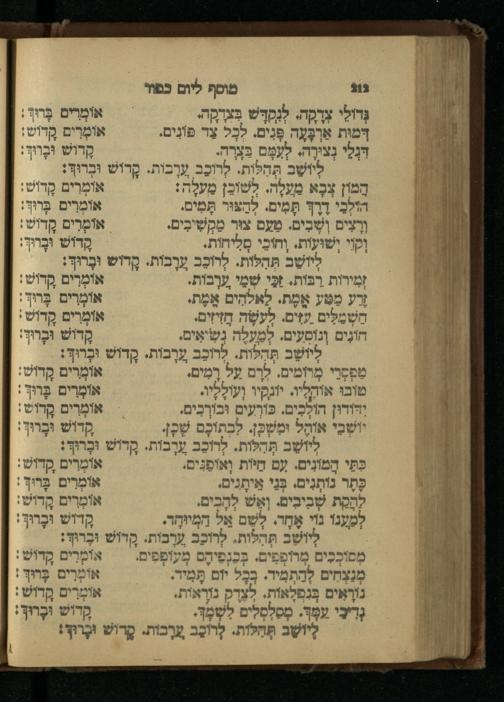 212 מוסף ליום כפור
גְּדוֹלֵי צְדָקָה. לְנִקְדָּשׁ בִּצְדָקָה. אוֹמְרִים בָּרוּךְ:
דְּמוּת אַרְבָּעָה פָנִים. לְכָל צַד פּוֹנִים. אוֹמְרִים קָדוֹשׁ:
דִּגְלֵי נְצוּרָה. לְעִמָּם בְּצָרָה. קָדוֹשׁ וּבָרוּךְ:
לְיוֹשֵׁב תְּהִלּוֹת. לְרוֹכֵב עֲרָבוֹת. קָדוֹשׁ וּבָרוּךְ:
הֲמוֹן צְבָא מַעְלָה. לְשׁוֹכֵן מַעְלָה: אוֹמְרִים קָדוֹשׁ:
הוֹלְכֵי דֶרֶךְ תָּמִים. לְהַצּוּר תָּמִים. אוֹמְרִים בָּרוּךְ:
וְרָצִים וְשָׁבִים. טַעַם צוּר מַקְשִׁיבִים. אוֹמְרִים קָדוֹשׁ:
וְקוֹיֵ יְשׁוּעוֹת. וְחוֹכֵי סְלִיחוֹת. קָדוֹשׁ וּבָרוּךְ:
לְיוֹשֵׁב תְּהִלּוֹת. לְרוֹכֵב עֲרָבוֹת. קָדוֹשׁ וּבָרוּךְ:
זְמִירוֹת רַבּוֹת. זַכֵּי שְׁמֵי עֲרָבוֹת. אוֹמְרִים קָדוֹשׁ:
זֶרַע מַטַּע אֱמֶת. לֵאלֹהִים אֱמֶת. אוֹמְרִים בָּרוּךְ:
חַשְׁמַלִּים עַזִּים. לְעֹשֶׂה חֲזִיזִים. אוֹמְרִים קָדוֹשׁ:
חוֹנִים וְנוֹסְעִים. לְמַעֲלֶה נְשִׂיאִים. קָדוֹשׁ וּבָרוּךְ:
לְיוֹשֵׁב תְּהִלּוֹת. לְרוֹכֵב עֲרָבוֹת. קָדוֹשׁ וּבָרוּךְ:
טַפְסְרֵי מְרוֹמִים. לְרָם עַל רָמִים. אוֹמְרִים קָדוֹשׁ:
טוֹבוּ אוֹהָלָיו. יוֹנְקָיו וְעוֹלָלָיו. אוֹמְרִים בָּרוּךְ:
יִדּוֹדוּן הוֹלְכִים. כּוֹרְעִים וּבוֹרְכִים. אוֹמְרִים קָדוֹשׁ:
יוֹשְׁבֵי אוֹהֶל וּמִשְׁכָּן. לִבְתוֹכָם שָׁכֵן. קָדוֹשׁ וּבָרוּךְ:
לְיוֹשֵׁב תְּהִלּוֹת. לְרוֹכֵב עֲרָבוֹת. קָדוֹשׁ וּבָרוּךְ:
כִּתֵּי הֲמוֹנִים. עִם חַיּוֹת וְאוֹפַנִּים. אוֹמְרִים קָדוֹשׁ:
כֶּתֶר נוֹתְנִים. בְּנֵי אֵיתָנִים. אוֹמְרִים בָּרוּךְ:
לַהֲקַת שְׁבִיבִים. וְאֵשׁ לְהָבִים. אוֹמְרִים קָדוֹשׁ:
לְמַעֲנוֹ גוֹי אֶחָד. לְשֵׁם אֵל הַמְיוּחָד. קָדוֹשׁ וּבָרוּךְ:
לְיוֹשֵׁב תְּהִלּוֹת. לְרוֹכֵב עֲרָבוֹת. קָדוֹשׁ וּבָרוּךְ:
מְסוֹכְכִים מְרוֹפְפִים. בְּכַנְפֵיהֶם מְעוֹפְפִים. אוֹמְרִים קָדוֹשׁ:
מְנַצְּחִים לְהַתְמִיד. בְּכָל יוֹם תָּמִיד. אוֹמְרִים בָּרוּךְ:
נוֹרָאִים בְּנִפְלָאוֹת. לְצֶדֶק נוֹרָאוֹת. אוֹמְרִים קָדוֹשׁ:
נְדִיבֵי עַמֶּךָ. מְסַלְסְלִים לִשְׁמֶךָ. קָדוֹשׁ וּבָרוּךְ:
לְיוֹשֵׁב תְּהִלּוֹת. לְרוֹכֵב עֲרָבוֹת. קָדוֹשׁ וּבָרוּךְ: